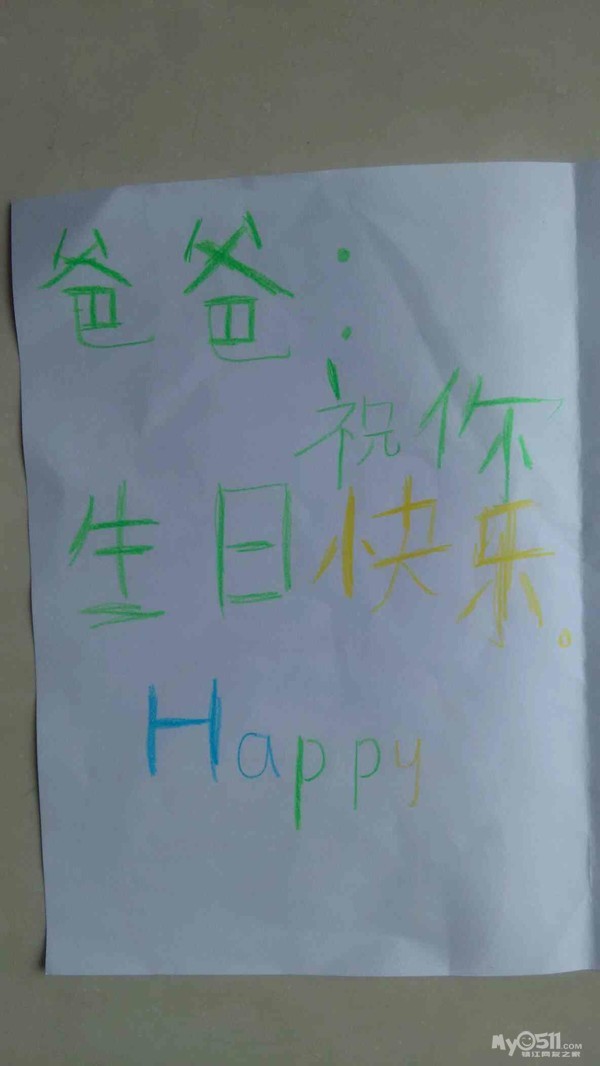 爸爸：
祝你
生日快乐。
Happy
My0511.COM
镇江网友之家